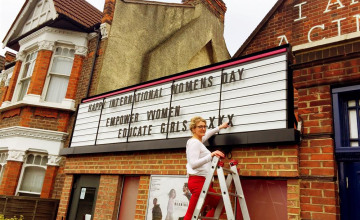 HAPPY INTERNATIONAL WOMENS DAY
EMPOWER WOMEN
EDUCATE GIRLS XXXX
I A
ACTI